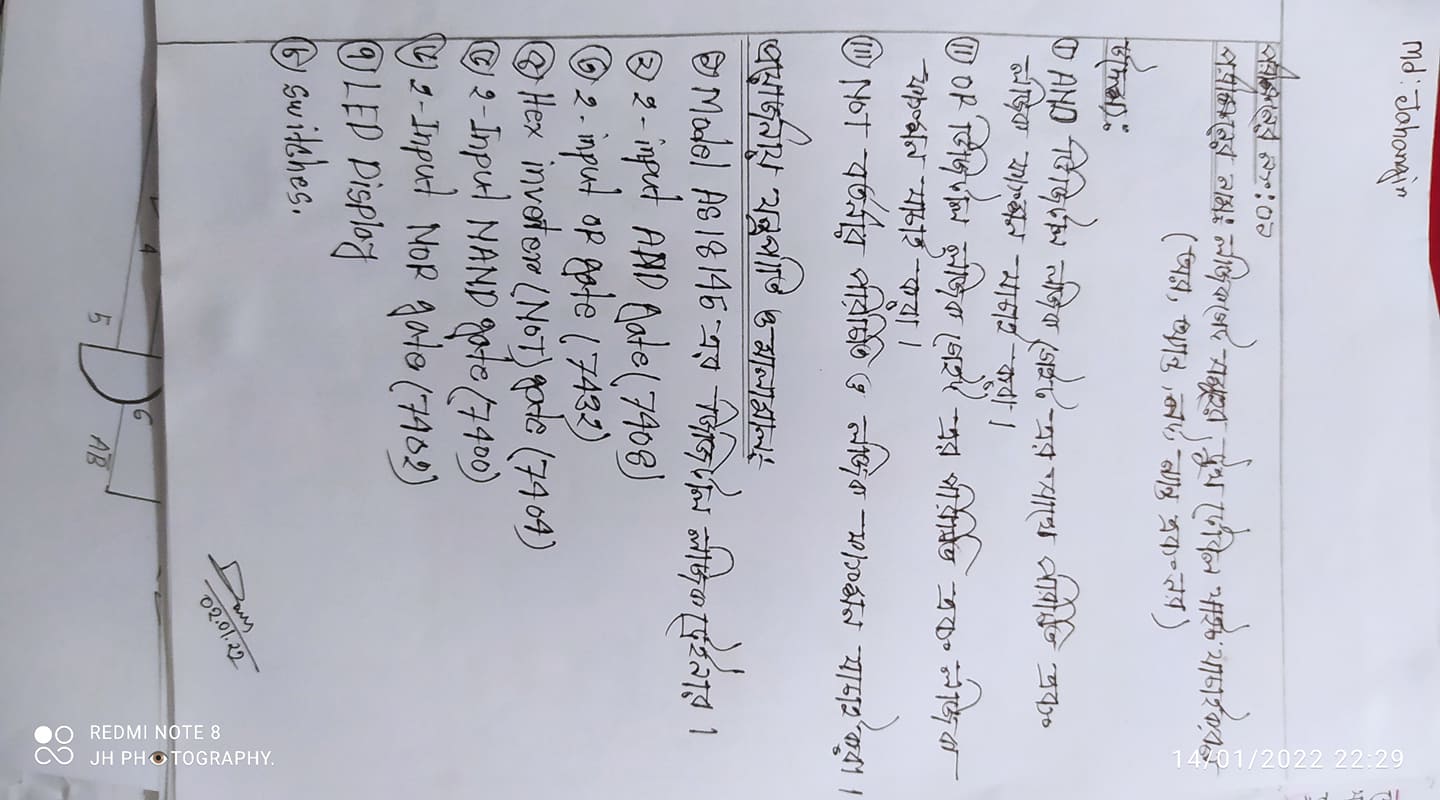 Md: Jahangir
পরীক্ষণের নং: ০১
পরীক্ষণের নামঃ লজিক গেট সমূহের ট্রুথ টেবিল যাচাই করণ
(অর, অ্যান্ড, নট, ন্যান্ড এবং নর)
I AND ডিজিটাল লজিক গেট এর সাথে পরিচিতি এবং
লজিক ফাংশন যাচাই করা।
II OR ডিজিটাল লজিক গেট এর পরিচিতি এবং লজিক
ফাংশন যাচাই করা।
III NOT গেটের পরিচিতি ও লজিক ফাংশন যাচাই করা।
প্রয়োজনীয় যন্ত্রপাতি ও মালামালঃ
Model AS18145 এর ডিজিটাল লজিক ট্রেইনার।
২ 2-input AND Gate (7408)
৩ 2-input OR gate (7432)
৪ Hex invotor (NOT) gate (7404)
৫ 2-Input NAND gate (7400)
৬ 2-Input NOR gate (7402)
৭ LED Display
৮ Switches.
02.01.22
4
5
6
AB
REDMI NOTE 8
JH PHOTOGRAPHY.
14/01/2022 22:29